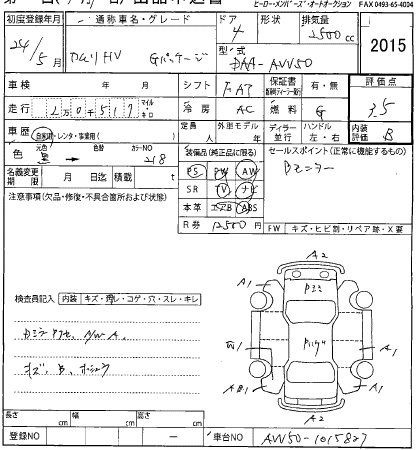 ヒーロー・メンバーズ・オートオークション FAX 0493-65-4004
初度登録年月 通称車名・グレード ドア 形状 排気量
24/5月 カムリHV Gパッケージ 4 2500cc 2015
型式 DAA-AVV50
車検 年 月 シフト FAT 保証書 有・無 評価点
走行 2万0517 マイル キロ 冷房 AC 燃料 G 3.5
車歴 自家用・レンタ・事業用( ) 定員 人 外車モデル 年 ディーラー 並行 ハンドル 左・右 内装評価 B
色 元色 黒 → 色替 カラーNO 218 装備品(純正品に限る) セールスポイント(正常に機能するもの)
名義変更期限 月 日迄 積載 t PS PW AW Bモニター
注意事項(欠品・修復・不具合箇所および状態) SR TV ナビ
本革 エアB ABS
R券 12500円 FW キズ・ヒビ割・リペア跡・X要
検査員記入 内装 キズ・押し・コゲ・穴・スレ・キレ
A2
A1 A1
A1
AB1 A1
A2
キズ、B、
長さ cm 幅 cm 高さ cm
登録NO ー 車台NO AVV50-1015827